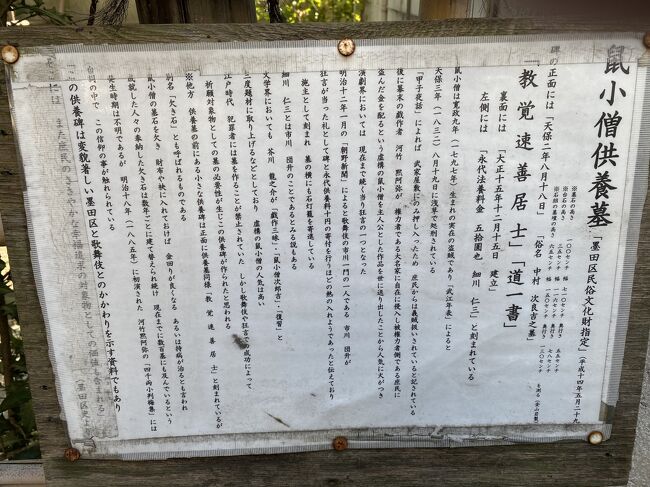 鼠小僧供養墓「墨田区民俗文化財指定」(平成十四年五月二十九
碑の正面には「天保二年八月十八日」「俗名 中村 次良吉之墓」
「教覚速善居士」「道一書」
裏面には「大正十五年十二月十五日 建立」
左側には「永代法養料金 五拾圓也 細川 仁三」と刻まれている
鼠小僧は寛政九年(一七九七年)生まれの実在の盗賊であり「武江年表」によると
天保三年(一八三二)八月十九日に浅草で処刑されている
「甲子夜話」によれば 武家屋敷にのみ押し入ったため 庶民からは義賊扱いされていると記されている
後に幕末の戯作者 河竹 黙阿弥が 権力者である大名家に自在に侵入し被権力者側である庶民に
盗んだ金を配るという虚構の鼠小僧を主人公とした作品を世に送り出したことから人気に火がつき
演劇界においては 現在まで続く当り狂言の一つとなった
明治十二年一月の「朝野新聞」によると歌舞伎の市川一門の一人である 市川 団升が
狂言が当った礼として碑と永代供養料十円の寄付を行うほどの熱の入れようであったと伝えており
施主として刻まれ 墓の横にも石灯籠を寄進している
細川 仁三とは市川 団升のことであるとみる説もある
文学界においても 芥川 龍之介が「戯作三昧」「鼠小僧次郎吉」「復讐」と
三度題材に取り上げるなどしており 虚構の鼠小僧の人気は高い
江戸時代 犯罪者には墓を作ることが禁止されていた しかし歌舞伎や狂言での成功によって
祈願対象物としての墓の必要性が生じこの供養碑が作られたと思われる
※他方 供養墓の前にある小さな供養碑は正面に供養墓同様「教 覚 速 善 居 士」と刻まれているが
別名「欠き石」とも呼ばれるものである
鼠小僧の墓石を欠き 財布や袂に入れておけば 金回りが良くなる あるいは持病が治るとも言われ
成就した人々の奉納した欠き石は数年ごとに建て替えられ続け 現在までに数百基にも及んでいるという
発生時期は不明であるが 明治十八年(一八八五年)に初演された 河竹黙阿弥の「四千両小判梅葉」には
台詞の中で この信仰の事が触れられている
この供養碑は変貌著しい墨田区と歌舞伎とのかかわりを示す資料でもあり
また庶民のささやかな幸福追求の対象物としての価値も含まれる